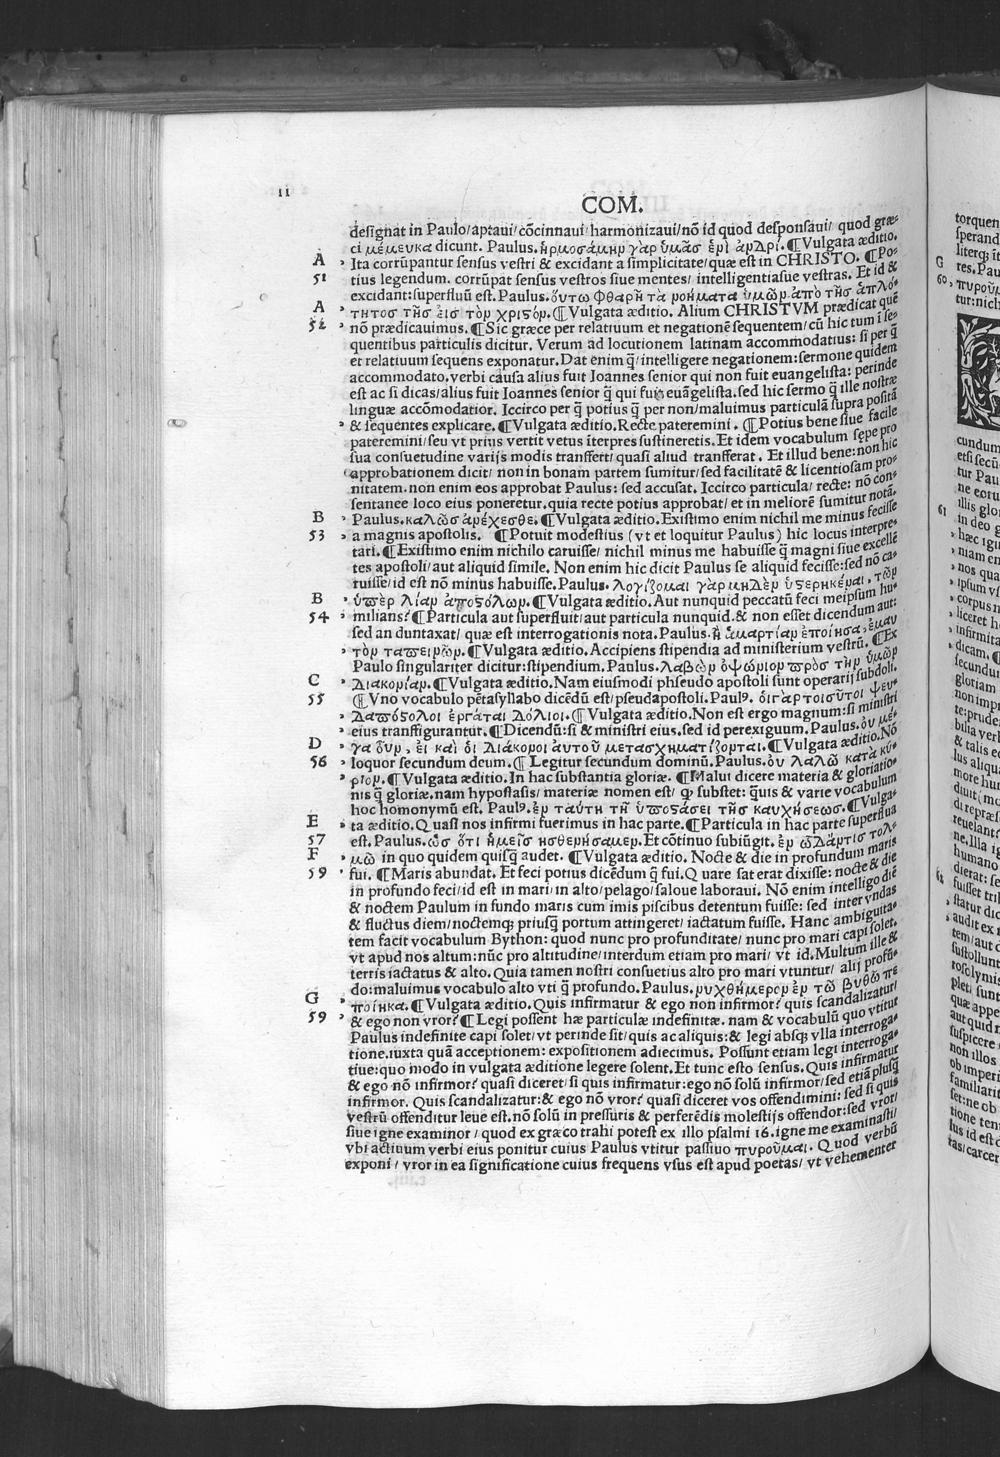 II
COM.
designat in Paulo/aptaui/cōcinnaui/harmonizaui/nō id quod desponsaui/ quod græ-
ci μέμευκα dicunt. Paulus. ἡρμοσάμην γὰρ ὑμᾶς ἑνὶ ἀνδρί. ¶Vulgata æditio.
A Ita corrūpantur sensus vestri & excidant a simplicitate/quæ est in CHRISTO. ¶Po-
51 tius legendum. corrūpāt sensus vestros siue mentes/ intelligentiasue vestras. Et id &
excidant:superfluū est. Paulus. ὅυτω φθαρῆ τὰ νοήματα ὑμῶν ἀπὸ τῆς ἁπλό-
A τητος τῆς ἐις τὸν χριϛόν. ¶Vulgata æditio. Alium CHRISTVM prædicat quē
52 nō prædicauimus. ¶Sic græce per relatiuum et negationē sequentem/cū hic tum ī se-
quentibus particulis dicitur. Verum ad locutionem latinam accommodatius: si per q̄
et relatiuum sequens exponatur. Dat enim q̄/intelligere negationem:sermone quidem
accommodato. verbi causa alius fuit Ioannes senior qui non fuit euangelista: perinde
est ac si dicas/alius fuit Ioannes senior q̄ qui fuit euāgelista. sed hic sermo q̄ ille nostræ
linguæ accōmodatior. Iccirco per q̄ potius q̄ per non/maluimus particulā supra positā
& sequentes explicare. ¶Vulgata æditio. Recte pateremini. ¶Potius bene siue facile
pateremini/seu vt prius vertit vetus īterpres sustineretis. Et idem vocabulum sępe pro
sua consuetudine varijs modis transfert/ quasi aliud transferat. Et illud bene: non hic
approbationem dicit/ non in bonam partem sumitur/sed facilitatē & licentiosam pro-
nitatem. non enim eos approbat Paulus: sed accusat. Iccirco particula/ recte: nō con-
sentanee loco eius poneretur. quia recte potius approbat/ et in meliorē sumitur notā.
B Paulus. καλῶς ἀνέχεσθε. ¶Vulgata æditio. Existimo enim nichil me minus fecisse
53 a magnis apostolis. ¶Potuit modestius (vt et loquitur Paulus) hic locus interpre-
tari. ¶Existimo enim nichilo caruisse/ nichil minus me habuisse q̄ magni siue excellē
tes apostoli/aut aliquid simile. Non enim hic dicit Paulus se aliquid fecisse:sed nō ca-
ruisse/id est nō minus habuisse. Paulus. λογίζομαι γὰρ μηδὲν ὑϛερηκέναι, τῶν
B ὑπὲρ λίαν ἀποϛόλων. ¶Vulgata æditio. Aut nunquid peccatū feci meipsum hu-
54 milians? ¶Particula aut superfluit/aut particula nunquid. & non esset dicendum aut:
sed an duntaxat/ quæ est interrogationis nota. Paulus. ἢ ἁμαρτίαν ἐποίησα, ἐμαυ
τὸν ταπεινῶν. ¶Vulgata æditio. Accipiens stipendia ad ministerium vestrū. ¶Ex
Paulo singulariter dicitur:stipendium. Paulus. λαβὼν ὀψώνιον πρὸς τὴν ὑμῶν
C διακονίαν. ¶Vulgata æditio. Nam eiusmodi phseudo apostoli sunt operarij subdoli.
55 ¶Vno vocabulo pētasyllabo dicēdū est/pseudapostoli. Paulꝰ. ὁιγὰρτοιοῦτοι ψευ-
δαπόϛολοι ἐργάται δόλιοι. ¶Vulgata æditio. Non est ergo magnum:si ministri
eius transfigurantur. ¶Dicendū:si & ministri eius. sed id perexiguum. Paulus. ὀυ μέ-
D γα ὀῦν, ἐι καὶ ὁι διάκονοι ἀυτοῦ μετασχηματίζονται. ¶Vulgata æditio. Nō
56 loquor secundum deum. ¶Legitur secundum dominū. Paulus. ὀυ λαλῶ κατὰ κύ-
ριον. ¶Vulgata æditio. In hac substantia gloriæ. ¶Malui dicere materia & gloriatio-
nis q̄ gloriæ. nam hypostasis/ materiæ nomen est/ ꝙ substet: q̄uis & varie vocabulum
hoc homonymū est. Paulꝰ. ἐν ταύτη τῆ ὑποϛάσει τῆς καυχήσεως. ¶Vulga-
E ta æditio. Quasi nos infirmi fuerimus in hac parte. ¶Particula in hac parte superflua
57 est. Paulus. ὡς ὅτι ἡμεῖς ησθενήσαμεν. Et cōtinuo subiūgit. ἐν ὧδἄντις τολ-
F μῶ in quo quidem quisq̄ audet. ¶Vulgata æditio. Nocte & die in profundum maris
59 fui. ¶Maris abundat. Et feci potius dicēdum q̄ fui. Quare sat erat dixisse: nocte & die
in profundo feci/id est in mari/in alto/pelago/saloue laboraui. Nō enim intelligo diē
& noctem Paulum in fundo maris cum imis piscibus detentum fuisse: sed inter vndas
& fluctus diem/noctemqꝫ priusq̄ portum attingeret/ iactatum fuisse. Hanc ambiguita-
tem facit vocabulum Bython: quod nunc pro profunditate/ nunc pro mari capi solet.
vt apud nos altum:nūc pro altitudine/interdum etiam pro mari/ vt id. Multum ille &
terris iactatus & alto. Quia tamen nostri consuetius alto pro mari vtuntur/ alij profū-
do:maluimus vocabulo alto vti q̄ profundo. Paulus. νυχθήμερον ἐν τῶ βυθῶ πε
G ποίηκα. ¶Vulgata æditio. Quis infirmatur & ego non infirmor? quis scandalizatur/
59 & ego non vror? ¶Legi possent hæ particulæ indefinitæ. nam & vocabulū quo vtitur
Paulus indefinite capi solet/ vt perinde sit/quis ac aliquis:& legi absqꝫ vlla interroga-
tione. iuxta quā acceptionem: expositionem adiecimus. Possunt etiam legi interroga-
tiue: quo modo in vulgata æditione legere solent. Et tunc esto sensus. Quis infirmatur
& ego nō infirmor? quasi diceret/ si quis infirmatur: ego nō solū infirmor/sed etiā plusq̄
infirmor. Quis scandalizatur:& ego nō vror? quasi diceret vos offendimini: sed si quis
vestrū offenditur leue est. nō solū in pressuris & perferēdis molestijs offendor:sed vror/
siue igne examinor/ quod ex græco trahi potest ex illo psalmi 16. igne me examinasti/
vbi actiuum verbi eius ponitur cuius Paulus vtitur passiuo πυροῦμαι. Quod verbū
exponi/ vror in ea significatione cuius frequens vsus est apud poetas/ vt vehementer